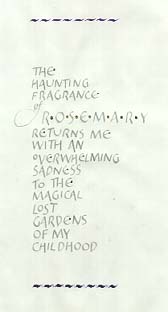 THE
HAUNTING
FRAGRANCE
of
R·O·S·E·M·A·R·Y
RETURNS ME
WITH AN
OVERWHELMING
SADNESS
TO THE
MAGICAL
LOST
GARDENS
OF MY
CHILDHOOD